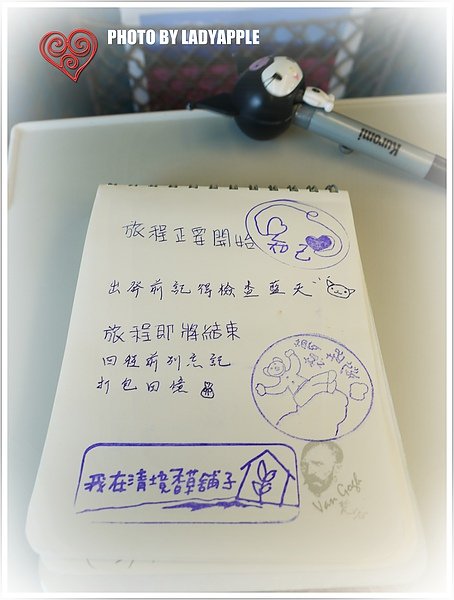 PHOTO BY LADYAPPLE
Kuromi
旅程正要開始
出發前記得檢查藍天
旅程即將結束
回程前別忘記
打包回憶
我在清境香草舖子
Van Gogh